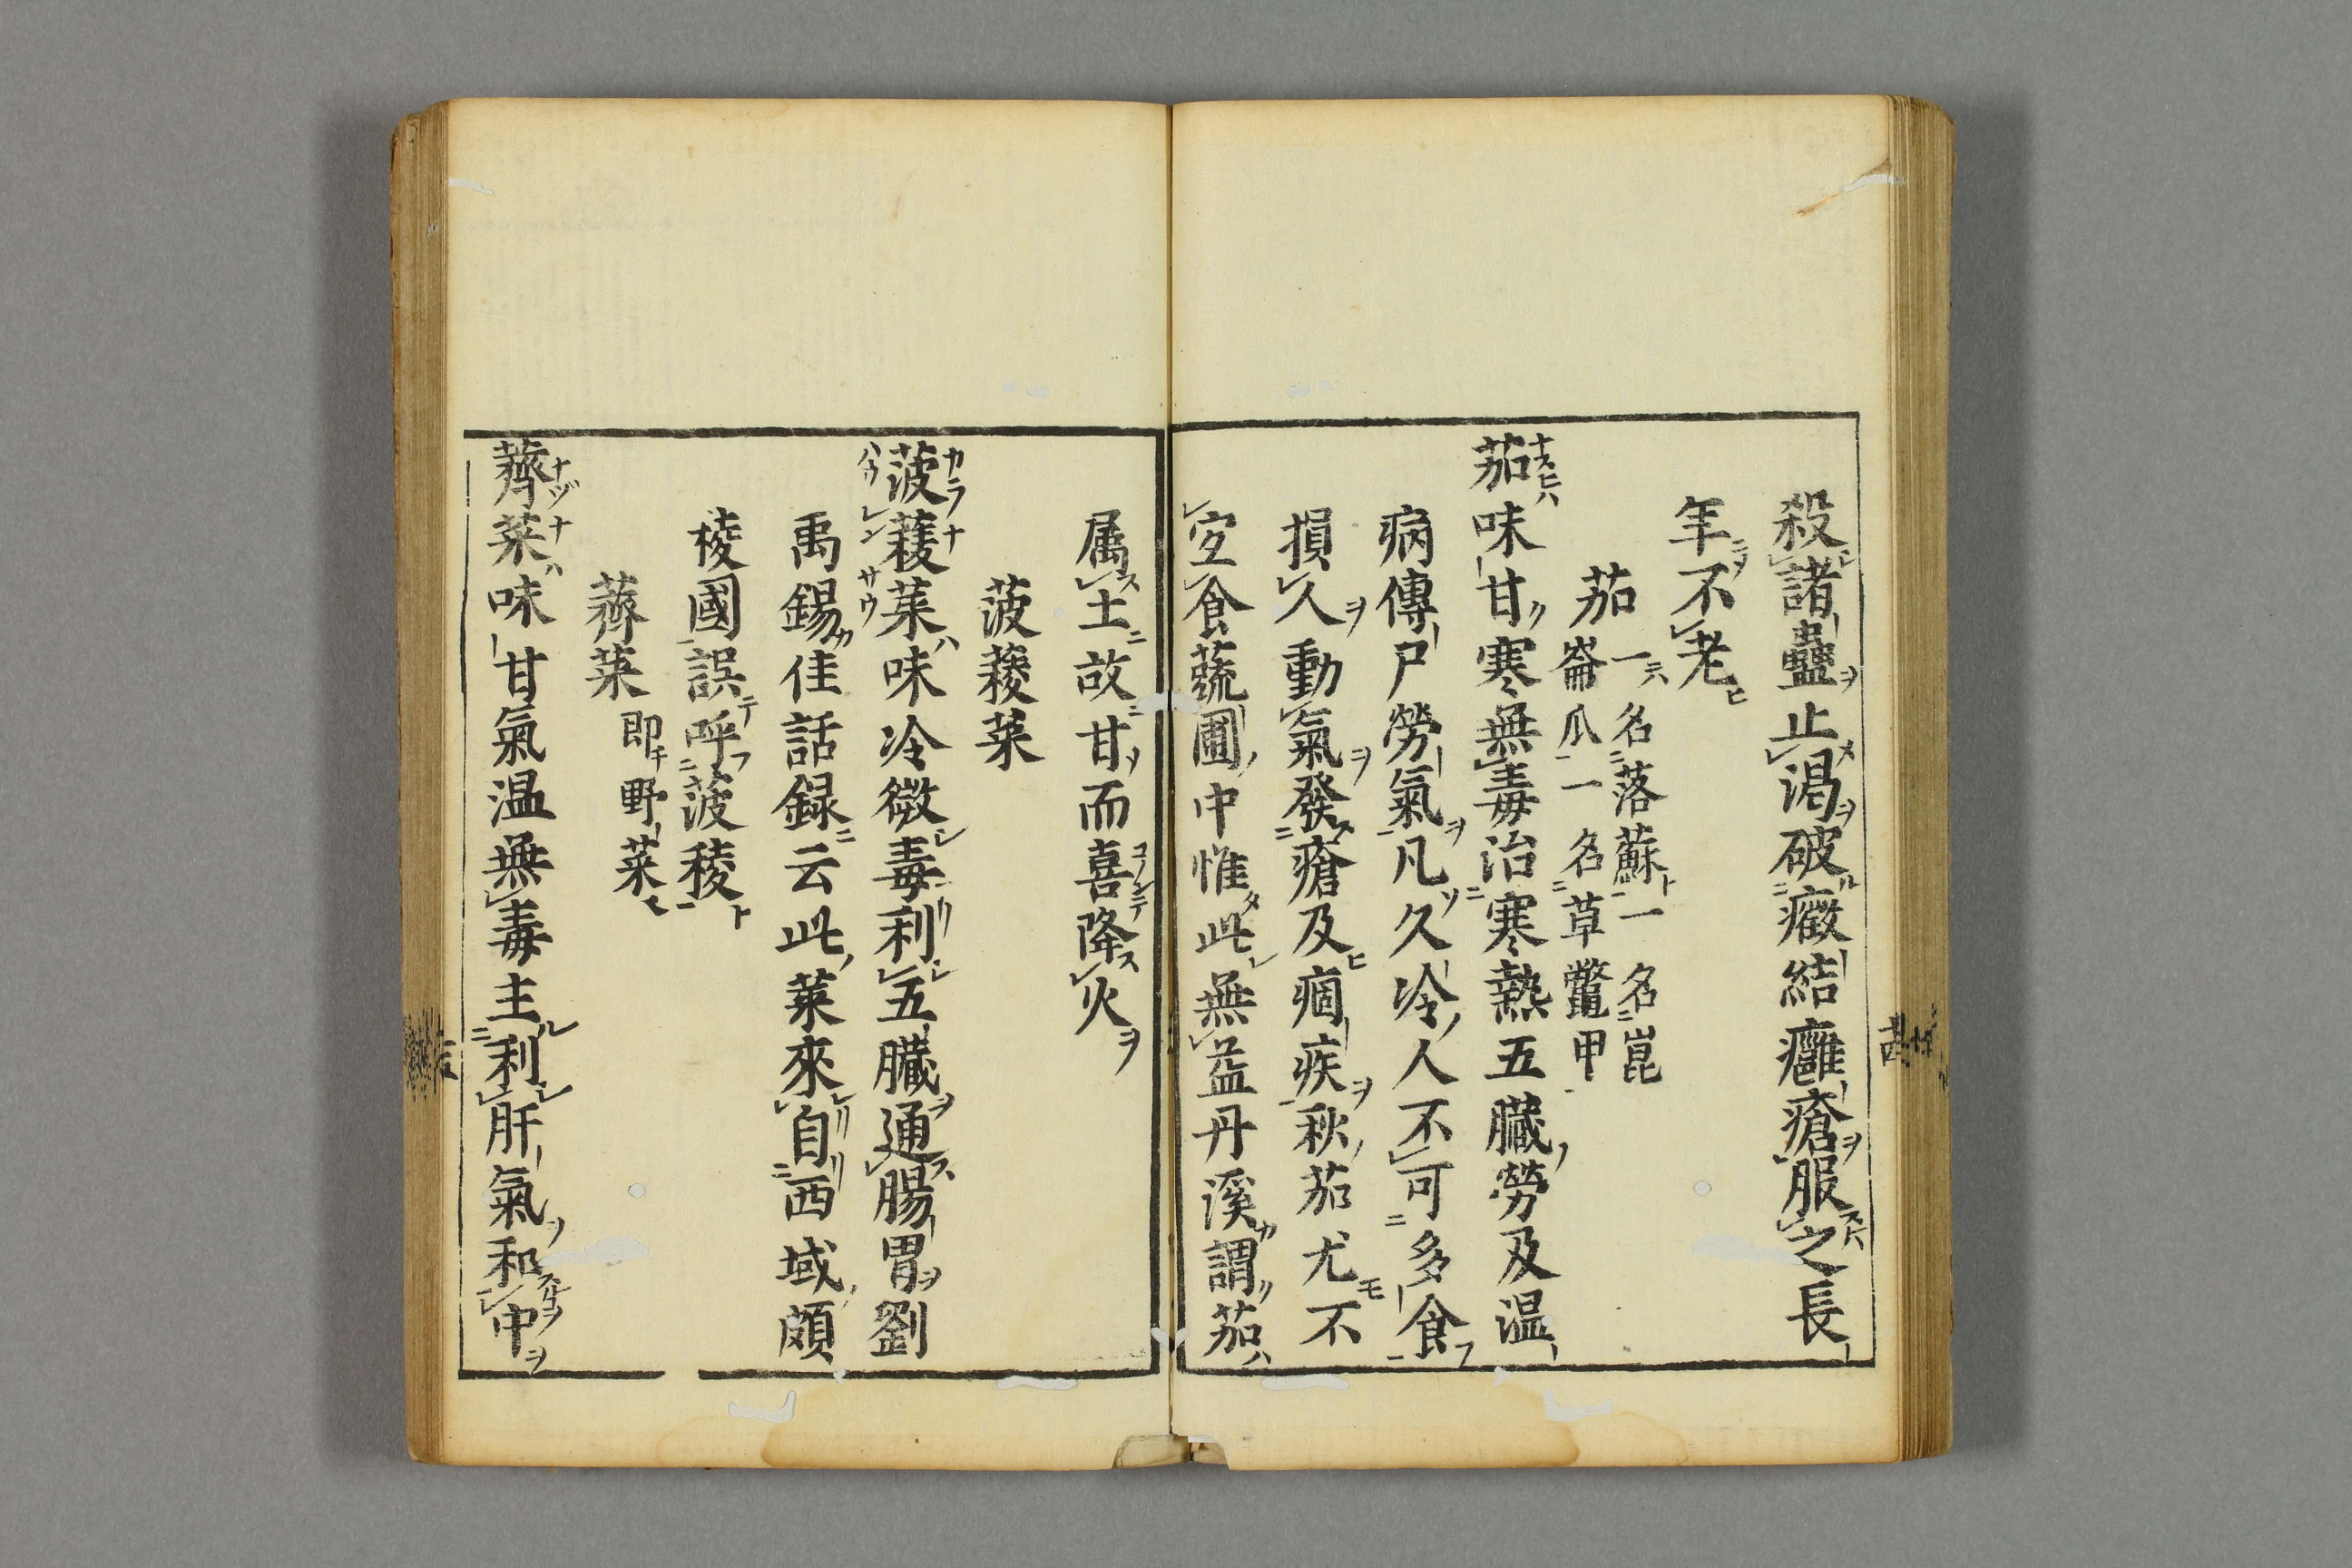 殺諸蠱止渇破癥結癰瘡服之長
年不老
茄一名落蘇一名崑
崙爪一名草鼈甲
茄味甘寒無毒治寒熱五臓勞及温
病傳尸勞氣凡久冷人不可多食
損人動氣發瘡及痼疾秋茄尤不
宜食蔬圃中惟此無益丹溪謂茄
属土故甘而喜降火
菠薐菜
菠薐菜味冷微毒利五臓通腸胃劉
禹錫佳話録云此菜來自西域頗
棱國誤呼菠稜
薺菜即野菜
薺菜味甘氣温無毒主利肝氣和中